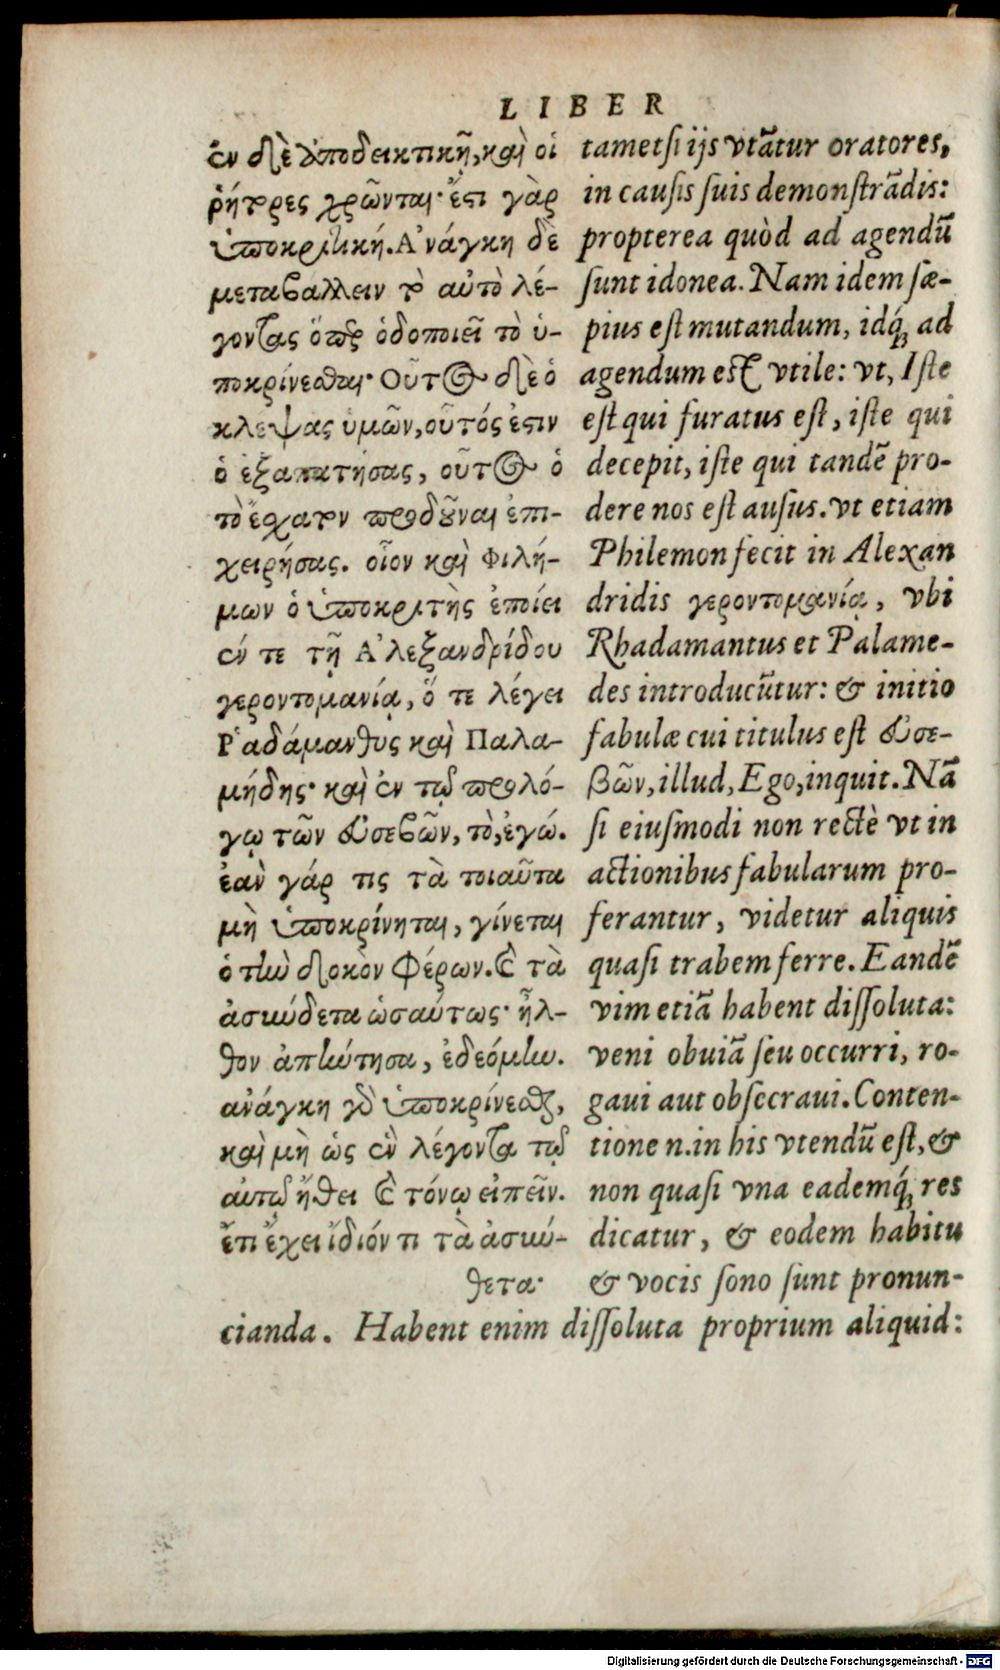 LIBER
ἐν δὲ ἀποδεικτικῇ, καὶ οἱ
ῥήτορες χρῶνται· ἔστι γὰρ
ὑποκριτική. Ἀνάγκη δὲ
μεταβάλλειν τὸ αὐτὸ λέ-
γοντας ὅπερ ὁδοποιεῖ τὸ ὑ-
ποκρίνεσθαι· Οὗτος δὲ ὁ
κλέψας ὑμῶν, οὗτός ἐστιν
ὁ ἐξαπατήσας, οὗτος ὁ
τὸ ἔσχατον προδοῦναι ἐπι-
χειρήσας. οἷον καὶ Φιλή-
μων ὁ ὑποκριτὴς ἐποίει
ἔν τε τῇ Ἀλεξανδρίδου
γεροντομανίᾳ, ὅ τε λέγει
Ῥαδάμανθυς καὶ Παλα-
μήδης· καὶ ἐν τῷ προλό-
γῳ τῶν εὐσεβῶν, τὸ, ἐγώ.
ἐὰν γάρ τις τὰ τοιαῦτα
μὴ ὑποκρίνηται, γίνεται
ὁ τὴν δοκὸν φέρων. καὶ τὰ
ἀσύνδετα ὡσαύτως· ἦλ-
θον ἀπήντησα, ἐδεόμην.
ἀνάγκη γὰρ ὑποκρίνεσθαι,
καὶ μὴ ὡς ἓν λέγοντα τῷ
αὐτῷ ἤθει καὶ τόνῳ εἰπεῖν.
ἔτι ἔχει ἴδιόν τι τὰ ἀσύν-
θετα·
tametsi ijs vtātur oratores,
in causis suis demonstrādis:
propterea quòd ad agendū
sunt idonea. Nam idem sæ-
pius est mutandum, idq́; ad
agendum est vtile: vt, Iste
est qui furatus est, iste qui
decepit, iste qui tandē pro-
dere nos est ausus. vt etiam
Philemon fecit in Alexan
dridis γεροντομανίᾳ, vbi
Rhadamantus et Palame-
des introducūtur: & initio
fabulæ cui titulus est εὐσε-
βῶν, illud, Ego, inquit. Nā
si eiusmodi non rectè vt in
actionibus fabularum pro-
ferantur, videtur aliquis
quasi trabem ferre. Eandē
vim etiā habent dissoluta:
veni obuiā seu occurri, ro-
gaui aut obsecraui. Conten-
tione n. in his vtendū est, &
non quasi vna eademq́; res
dicatur, & eodem habitu
& vocis sono sunt pronun-
cianda. Habent enim dissoluta proprium aliquid:
Digitalisierung gefördert durch die Deutsche Forschungsgemeinschaft - DFG